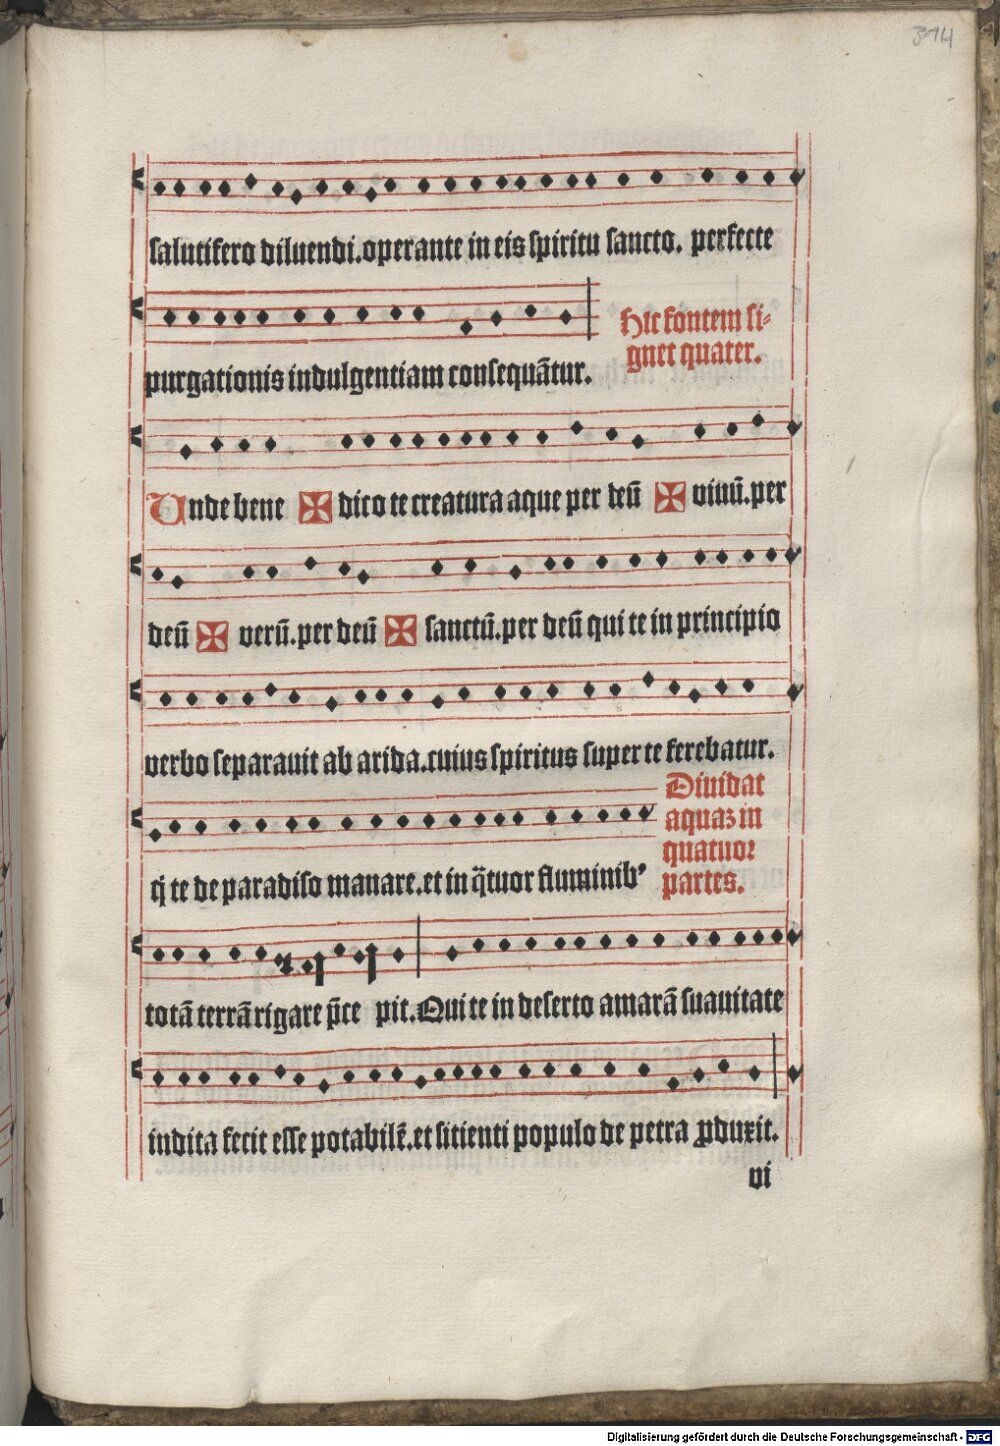 314
salutifero diluendi.operante in eis spiritu sancto. perfecte
purgationis indulgentiam consequātur.
Hic fontem si-
gnet quater.
Unde bene ✠ dico te creatura aque per deū ✠ viuū.per
deū ✠ verū.per deū ✠ sanctū.per deū qui te in principio
verbo separauit ab arida.cuius spiritus super te ferebatur.
Diuidat
aquaz in
quatuor
partes.
q̄ te de paradiso manare.et in q̄tuor fluminibꝰ
totā terrā rigare p̄ce pit.Qui te in deserto amarā suauitate
indita fecit esse potabilē.et sitienti populo de petra ꝓduxit.
vi
Digitalisierung gefördert durch die Deutsche Forschungsgemeinschaft - DFG